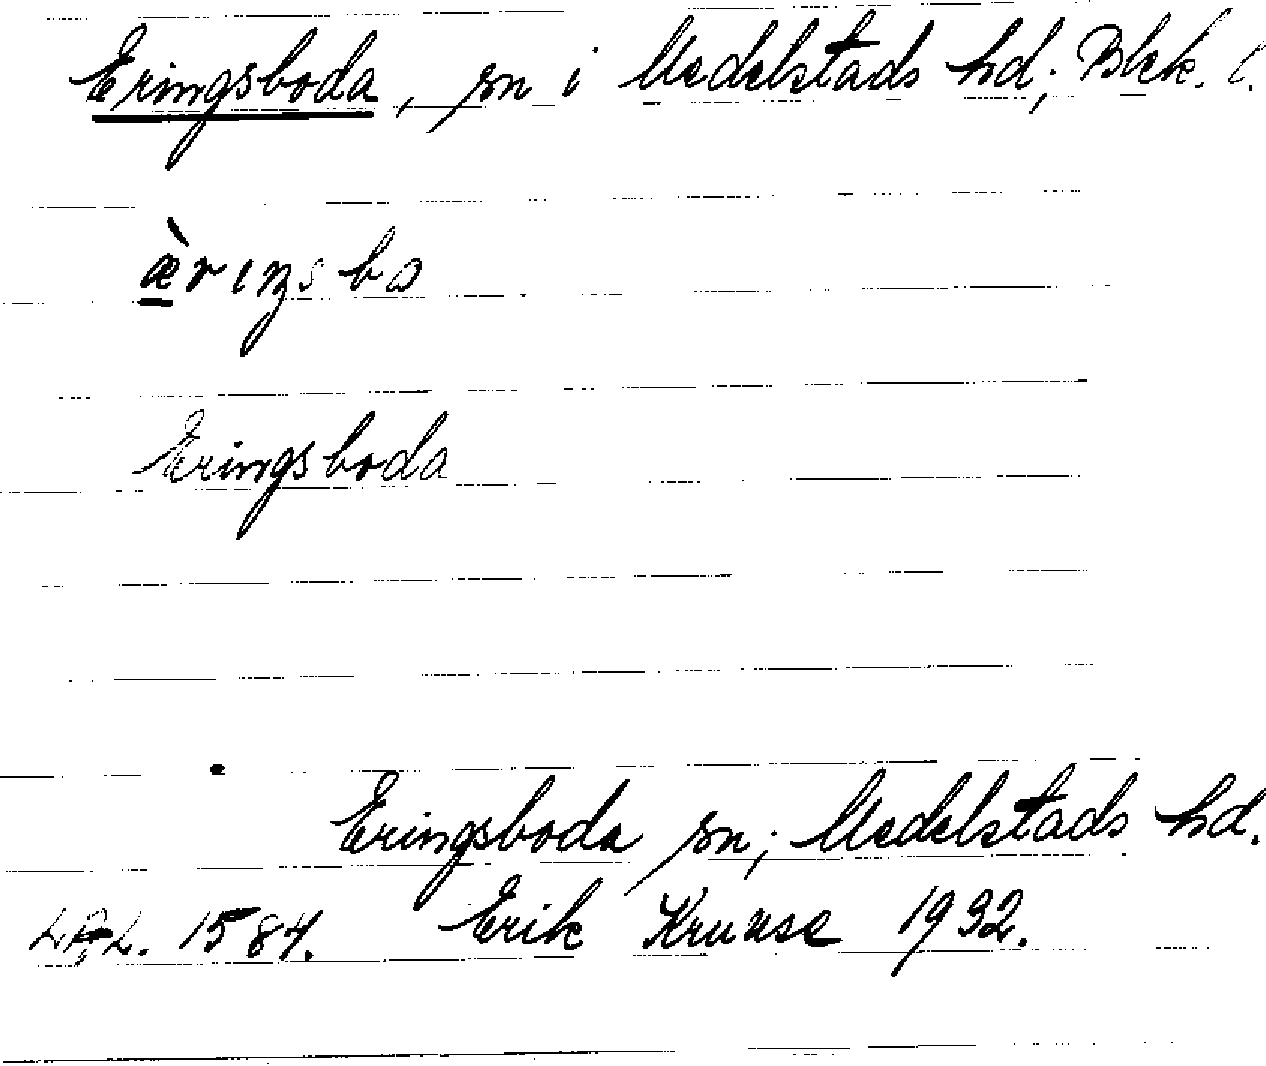 Eringsboda, sn i Medelstads hd; Blek. l.
æ̀rıŋsbo
Eringsboda
Eringsboda sn; Medelstads hd.
1584. Erik Kruuse 1932.